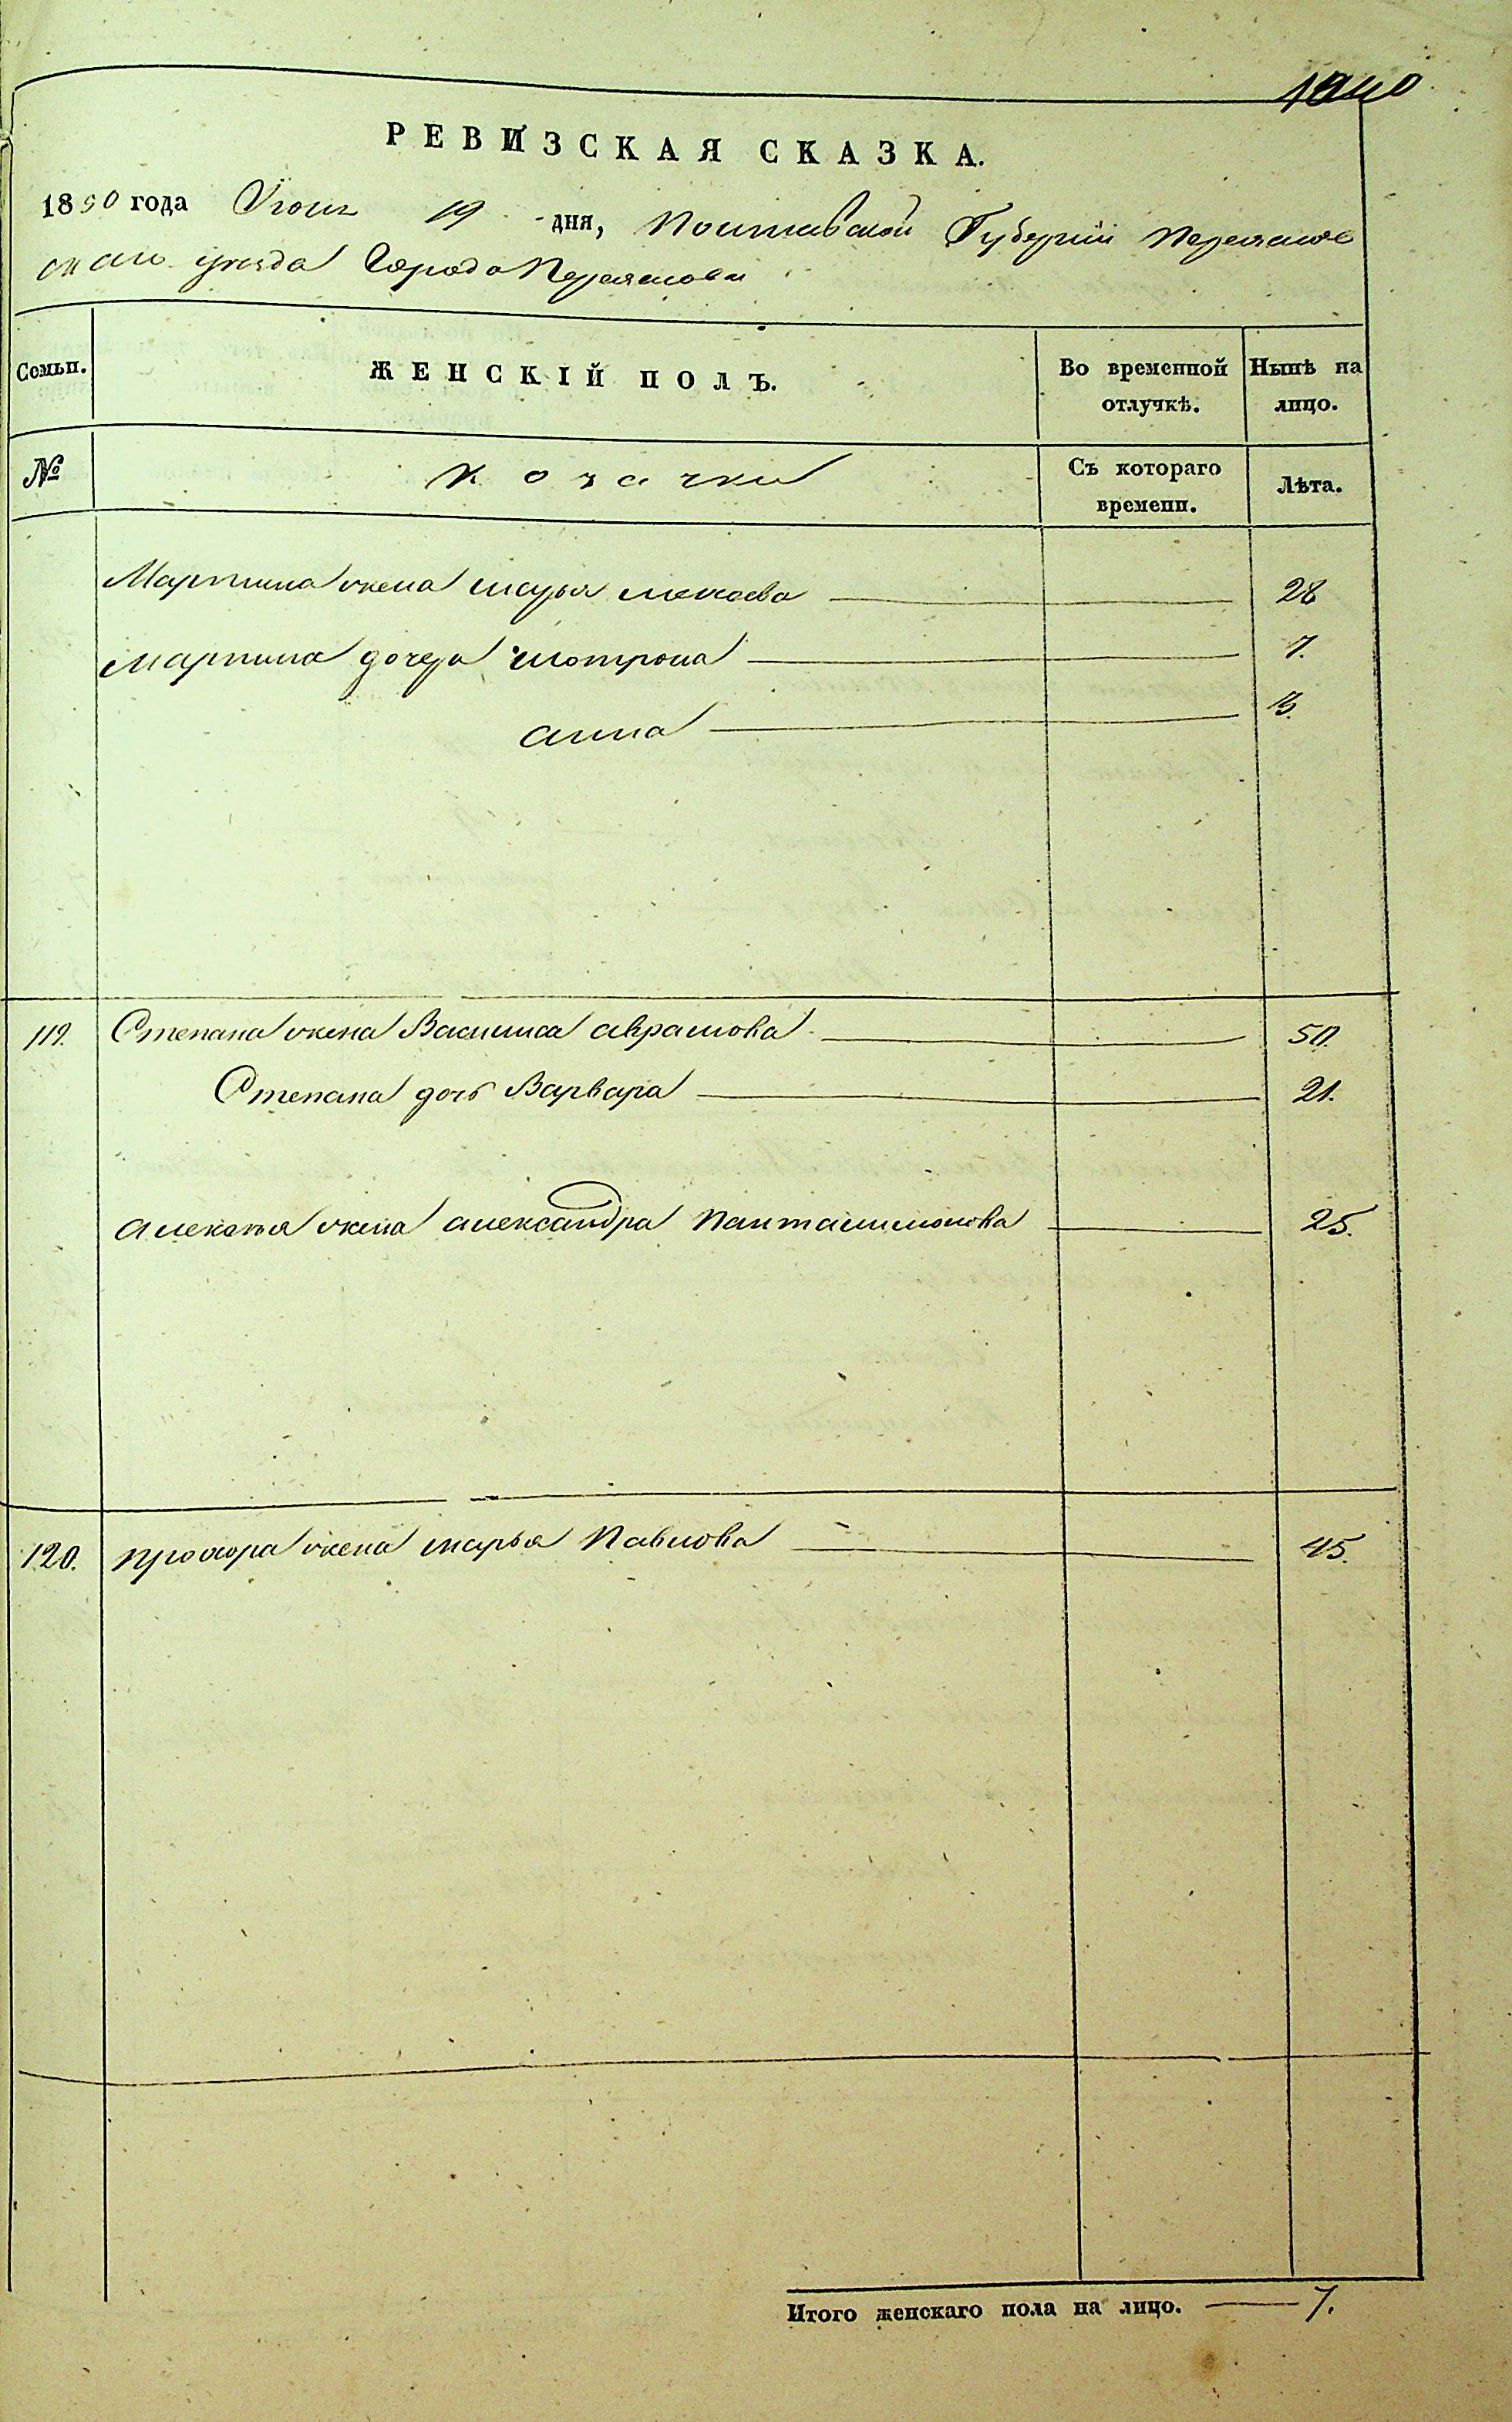 РЕВИЗСКАЯ СКАЗКА.
1850 года Июня 19 дня, Полтавской Губерніи Переяслов
скаго уезда Города Переяслова
Семьи. ЖЕНСКІЙ ПОЛЪ. Во временной отлучкѣ. Нынѣ на лицо.
№ Козачки Съ котораго времени. Лѣта.
Мартина жена марья 28
мартина дочери мотрона 7.
анна 3.
119. Степана жена Василиса аврамова 50.
Степана дочь Варвара 21.
алексея жена александра Панталимонова 25.
120. прохора жена марья Павлова 45.
Итого женскаго пола на лицо. 7.